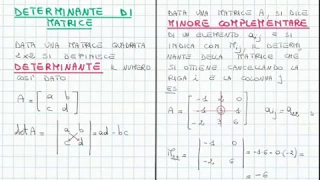 DETERMINANTE DI
MATRICE
DATA UNA MATRICE QUADRATA
2x2 SI DEFINISCE
DETERMINANTE IL NUMERO
COSÌ DATO
A = [a b
c d]
det A = |a b
c d| = ad - bc
DATA UNA MATRICE A, SI DICE
MINORE COMPLEMENTARE
DI UN ELEMENTO aij E SI
INDICA CON Mij, IL DETERMI
NANTE DELLA MATRICE CHE
SI OTTIENE CANCELLANDO LA
RIGA i E LA COLONNA j
ES:
A = [-1 2 0
-1 3 1
-2 3 6] aij = a22
M22 = |-1 0
-2 6| = -1·6-0·(-2) =
= -6